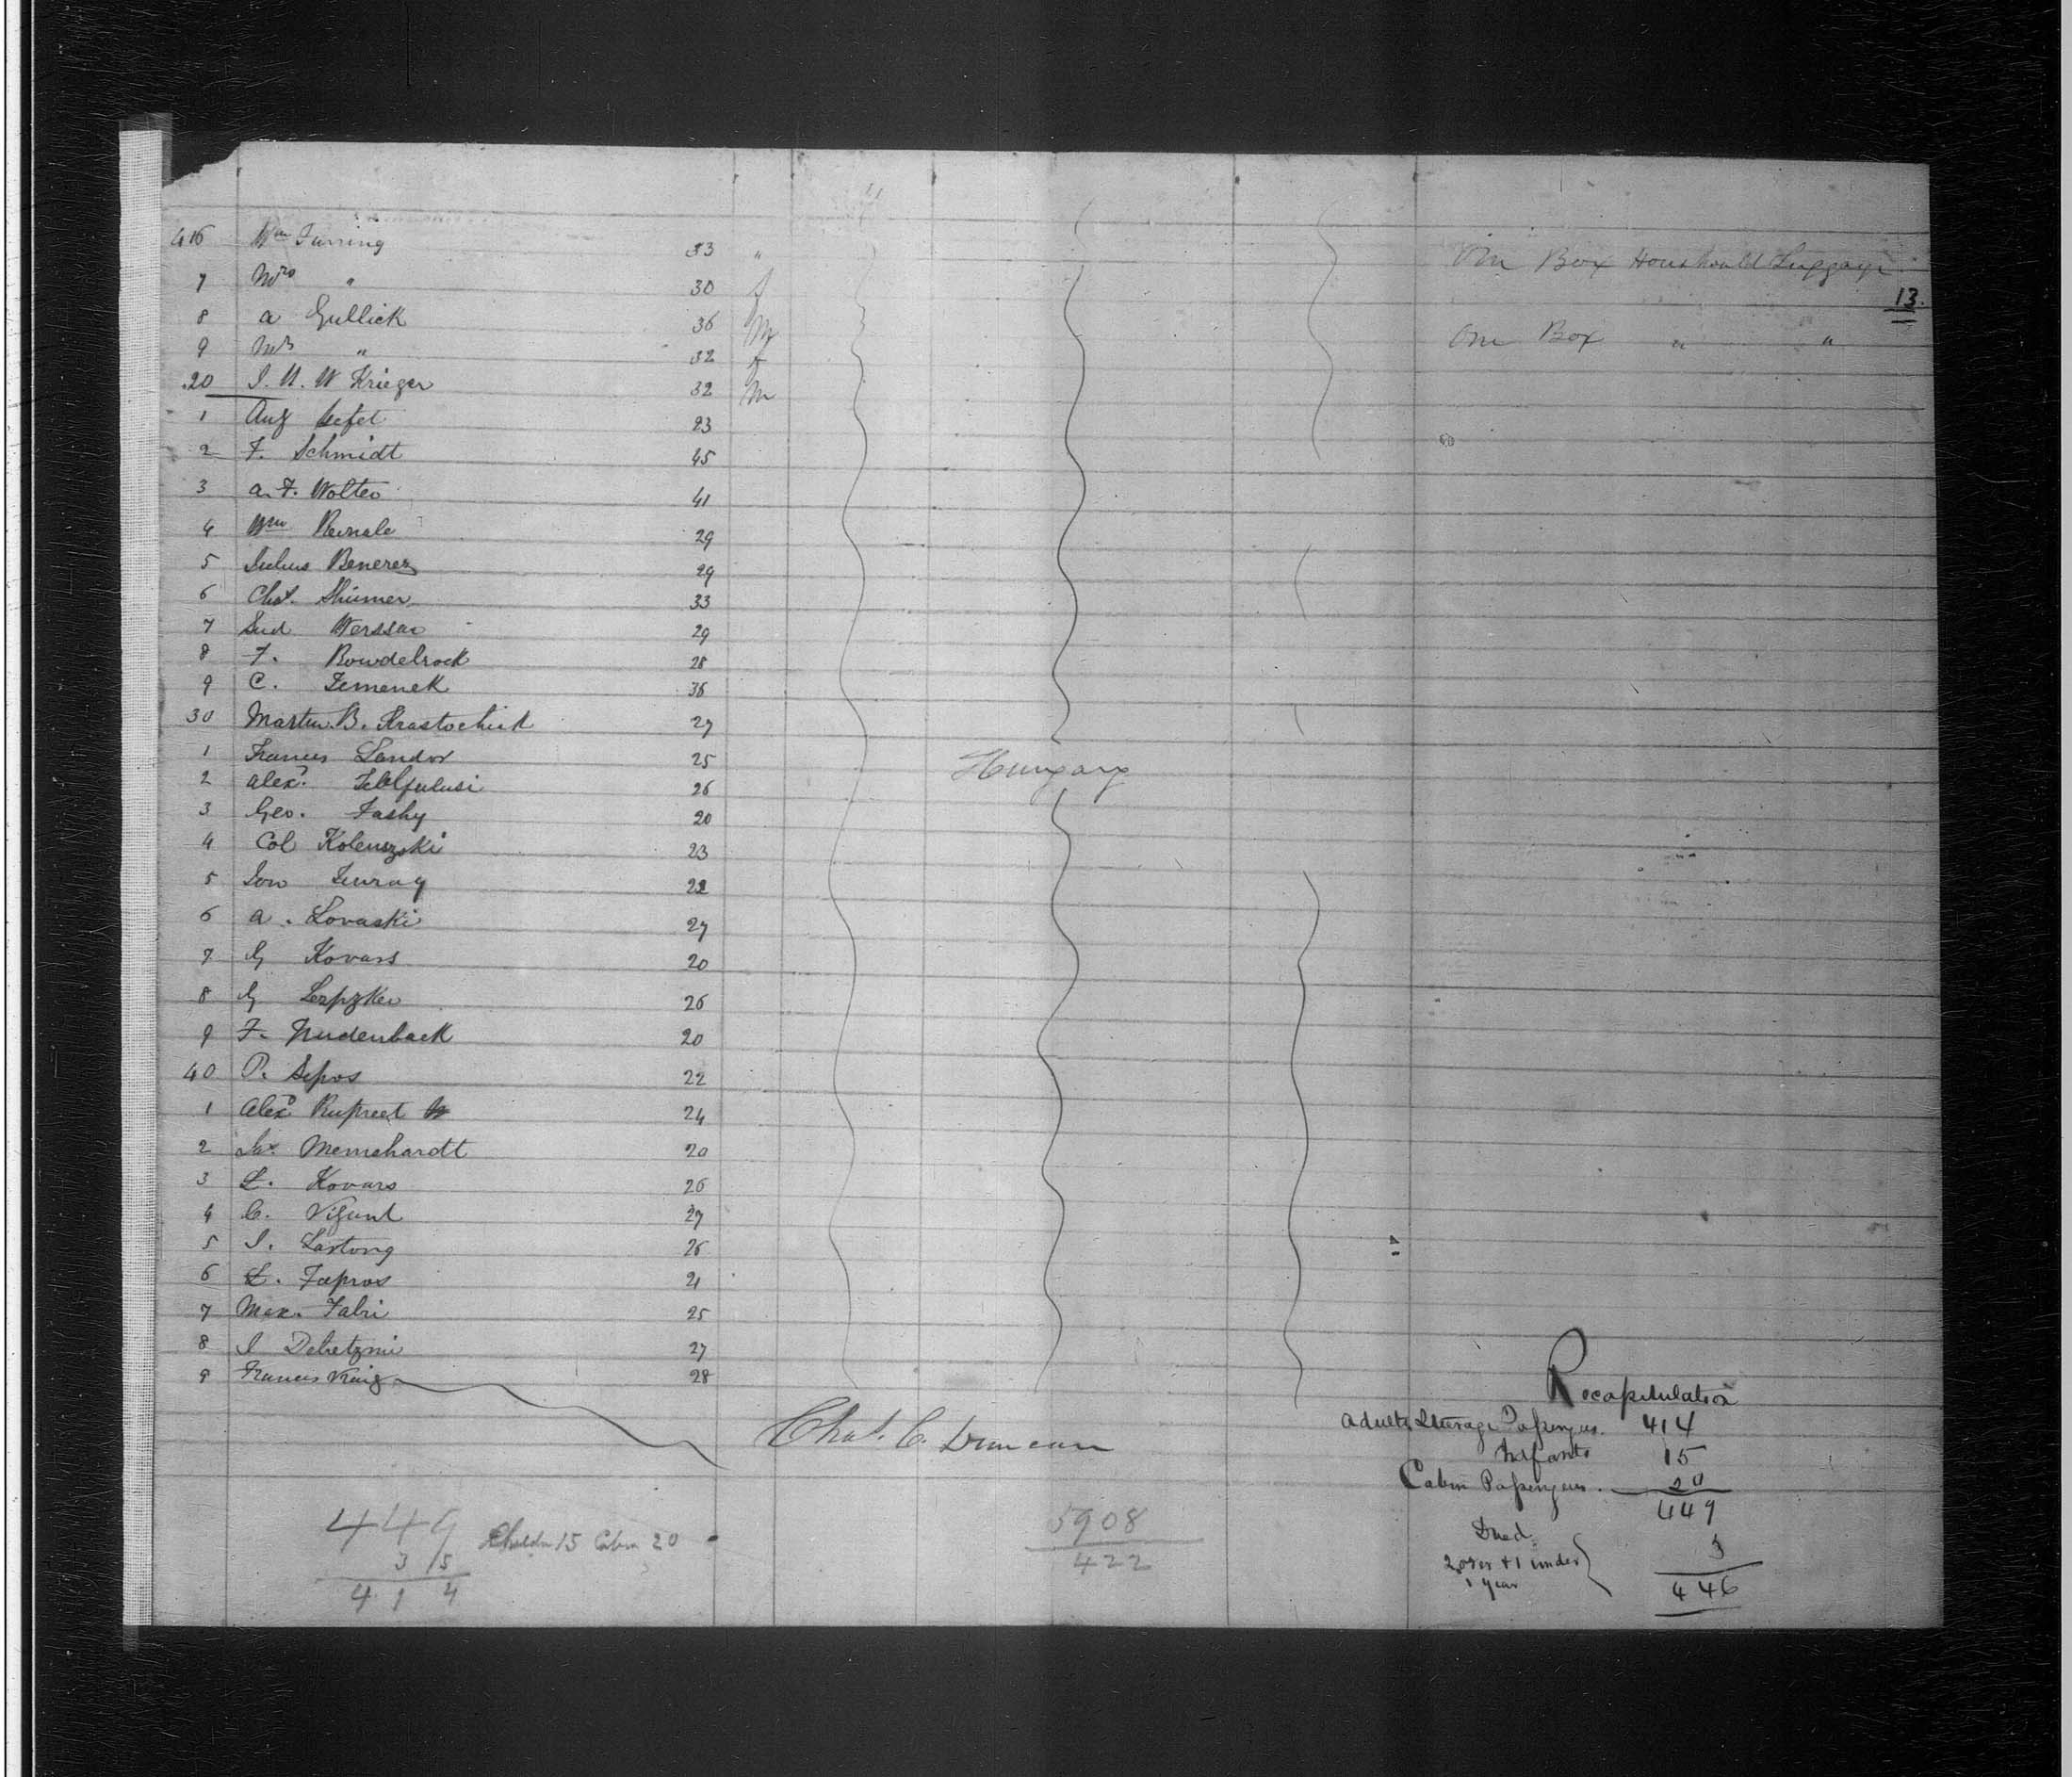 416 Wm Turring 33 " One Box Houshould Luggage
13.
7 Mrs " 30 f
8 A Gullick 36 M One Box " "
9 Mrs " 32 f
20 I. U. W Krieger 32 M
1 Aug 23
2 F. Schmidt 45
3 A. F. Wolter 41
4 Wm 29
5 Julius Benerez 29
6 Chas. Shümer 33
7 29
8 F. Bowdelrock 28
9 C. Zemenek 36
30 Martin B. 27
1 Francis Sandor 25
Hungary
2 Alexr. 26
3 Geo. Fashy 20
4 Col Kolenszski 23
5 22
6 A. Lovaski 27
7 G Kovars 20
8 G 26
9 F. Nudenback 20
40 P. Sepos 22
1 Alexr Rupreet 24
2 Memshardt 20
3 L. Kovars 26
4 C. 27
5 I. 26
6 L. Fapros 21
7 Max. Fabri 25
8 I Debetzni 27
9 Francis 28
Chas. C. Duncan
Recapitulation
Adults Steerage Passengers. 414
Infants 15
Cabin Passengers. 20
449
Died
2 over + 1 under 1 year 3
446
449 Childn 15 Cabin 20
35
414
5908
422